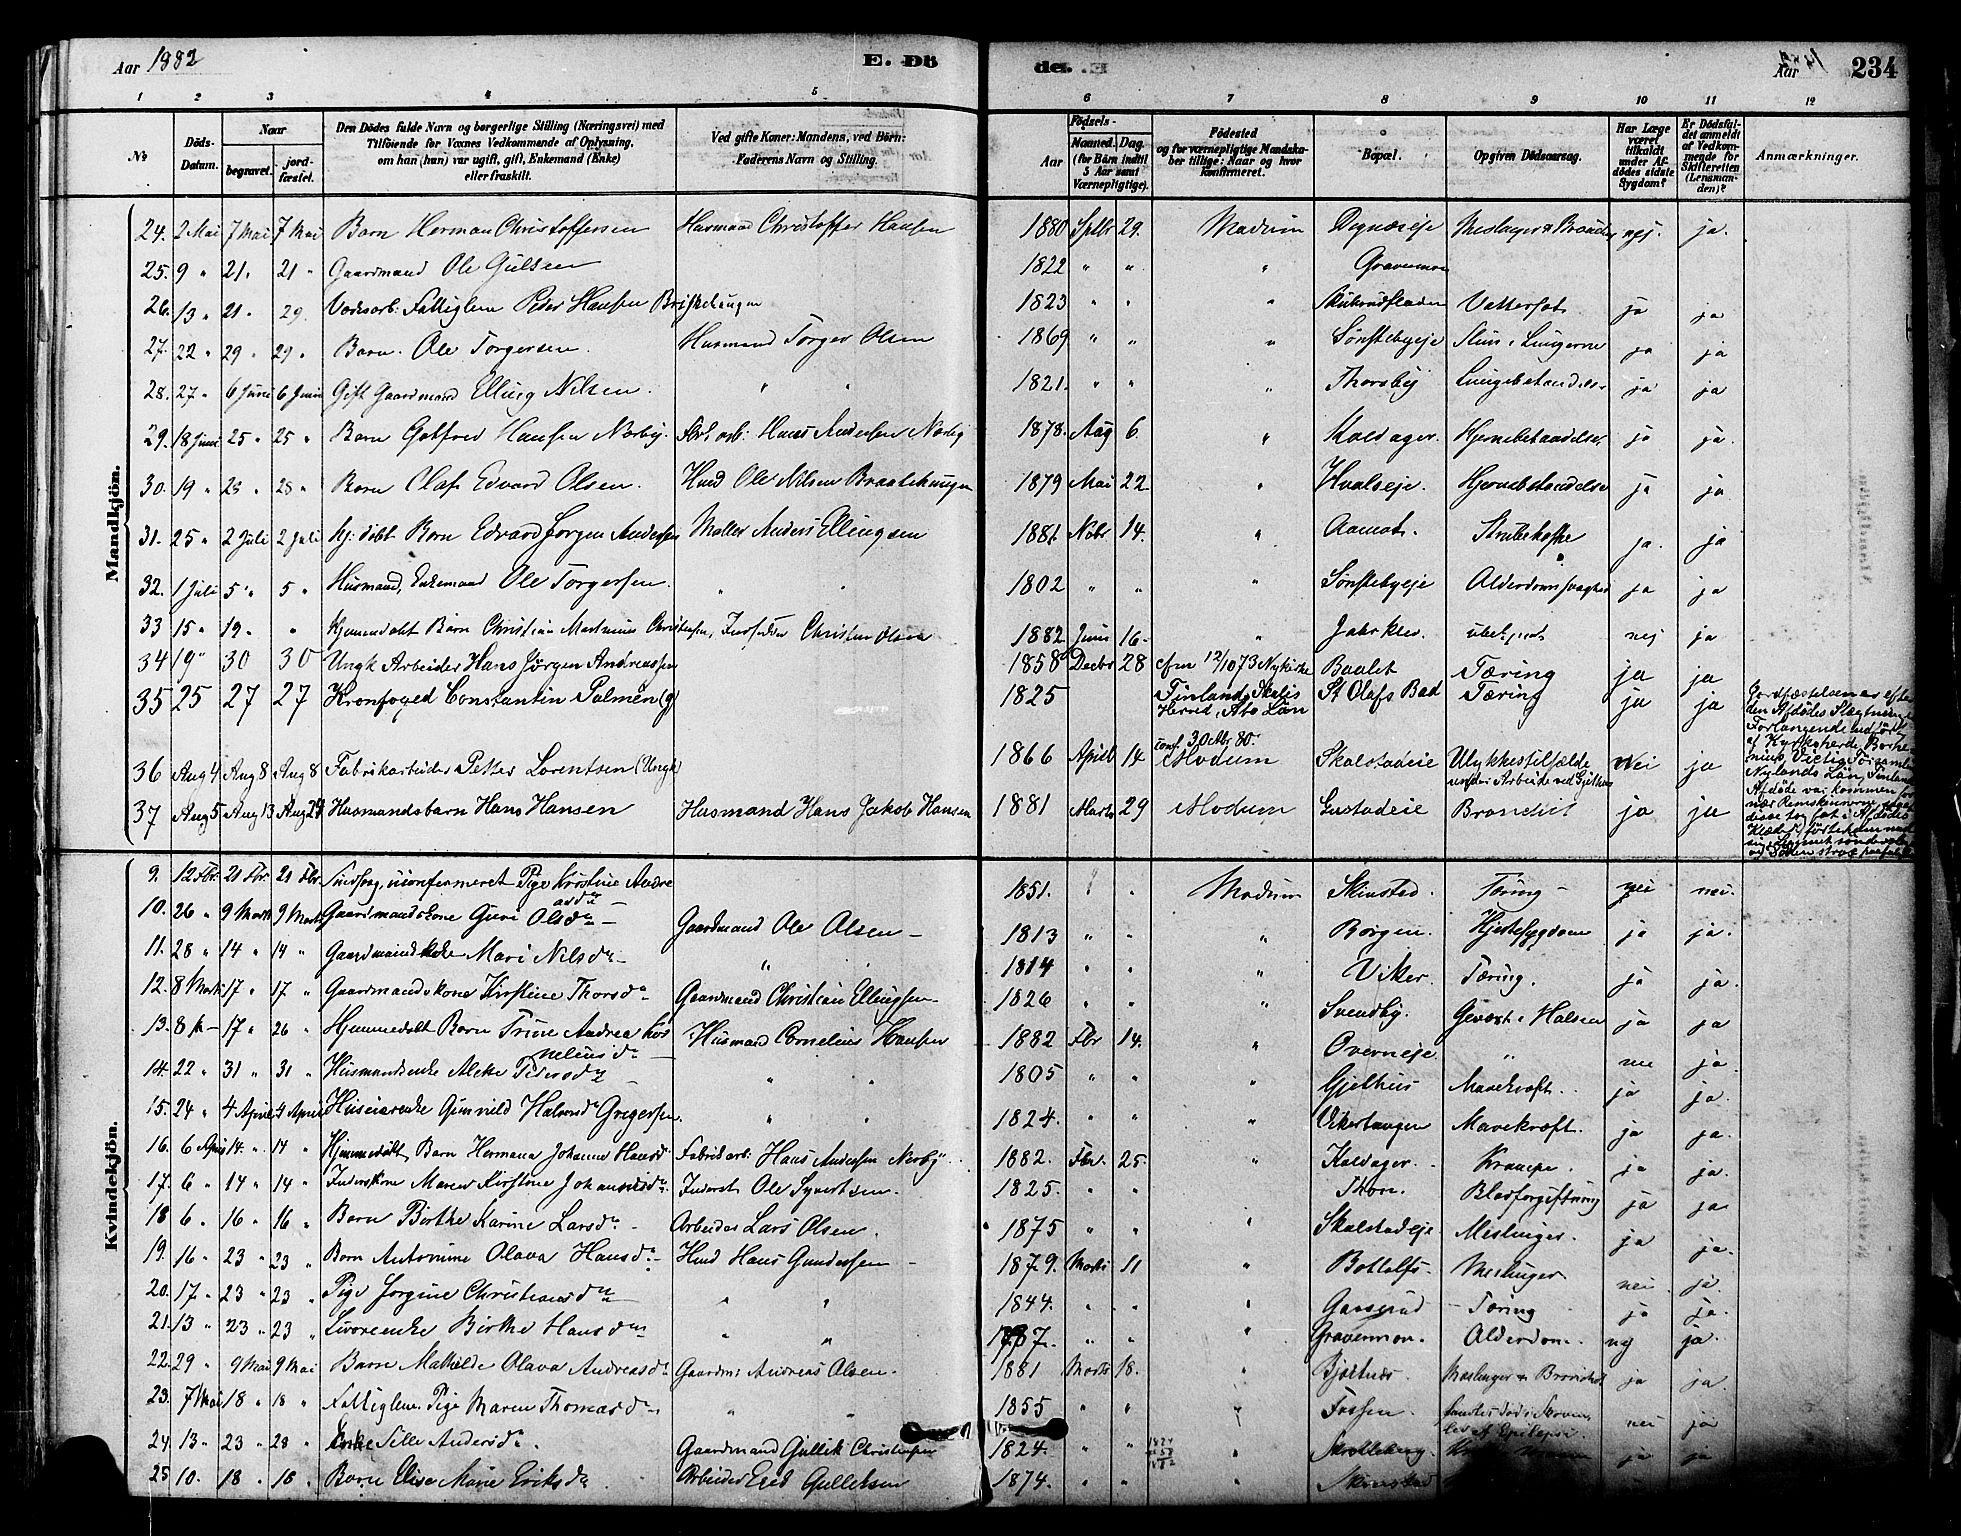 Aar 1882 E. Dö
de. E Aar 1882 234
1 2 3 4 5 6 7 8 9 10 11 12
No Döds-Datum. Naar begravet. jordfæstet. Den Dödes fulde Navn og borgerlige Stilling (Næringsvei) med Tilföiende for Voxnes Vedkommende af Oplysning, om han (hun) var ugift, gift, Enkemand (Enke) eller fraskilt. Ved gifte Koner: Mandens, ved Börn: Faderens Navn og Stilling. Födsels- Aar Maaned. Dag. (for Börn indtil 5 Aar samt Værnepligtige). Födested og for værnepligtige Mandskaber tillige: Naar og hvor konfirmeret. Bopæl. Opgiven Dödsaarsag. Har Læge været tilkaldt under Afdödes sidste Sygdom? Er Dödsfaldet anmeldt af Vedkommende for Skifteretten (Lensmanden)? Anmærkninger.
Mandkjön.
24. 2 Mai 7 Mai 7 Mai Barn Herman Christoffersen Husmand Christoffer Hansen 1880 Sptbr 29. Modum Degnæseje nej. ja.
25. 9 " 21 " 21 " Gaardmand Ole Gulsen 1822 " " " Gravenmon
26. 13 " 21 " 29. Fattiglem Peder Hansen Briskehaugen 1823 " " " Vattersot ja ja
27. 22 " 29 " 29 " Barn Ole Torgersen. Husmand Torger Olsen 1869 " " " Sønstebyeje Slim i Lungerne ja ja
28. 27 " 6 Juni 6 Juni Gift Gaardmand Elling Nilsen. " " 1821. " " " Thorsby Lungebetændelse ja ja
29. 18 Juni 25 " 25 " Barn Gotfred Hansen Nørby. Fbrk.arb. Hans Andersen Nørby 1878. Aug 6 " Kaldager. Hjernebetændelse ja ja.
30. 19 " 28 " 28 " Barn Olaf Edvard Olsen. Husmd Ole Nilsen Braatehaugen 1879 Mai 22 " Hvalseje. Hjernebetændelse ja ja
31. 25 " 2 Juli 2 Juli Hj: døbt Barn Edvard Jørgen Andersen Møller Anders Ellingsen 1881 Nobr 14. " Aamot. Strubehoste ja. ja
32. 1 Juli 5 " 5 " Husmand, Enkemand Ole Torgersen. " " 1802 " " " Sønstebyeje Alderdomssvaghed ja ja
33 15 " 19. " Hjemmedøbt Barn Christian Martinius Christensen, Inderst Christen Olsen 1882 Juni 16 " ubekjendt nej ja
34 19 " 30 30 Ungk Arbeider Hans Jörgen Andreassen 1858 Decbr 28 cfm 12/10 73 Nykirke Baalet Tæring ja ja
35 25 27 27 Kronfoged Constantin Palmén (g) 1825 Finland, Skalis Herred, Abo Län St Olafs Bad Tæring ja ja
36 Aug 4 Aug 8 Aug 8 Fabrikarbeider Petter Lorentsen (Ungk) 1866 April 14 conf. 30 Abr 80. Modum Skalstadeie Ulykkestilfælde under Arbeide ved Gjethus Nei ja
37 Aug 5 Aug 13 Aug 27 Husmandsbarn Hans Hansen Husmand Hans Jakob Hansen 1881 Marts 29 Modum Gustadeie Bronchit ja ja
Jordfæstelsen er efter den Afdödes Slægtninges Forlangende udfört af Kyrkoherde
Nylands Län, Finland
Afdöde var kommen for nær
Kvindekjön.
9. 12 Fbr. 21 Fbr. 21 Fbr. ukonfirmeret Pige Kristine Andreasda 1851. " " Modum Skinstad. Tæring - nei nei.
10. 26 " 9 Marts 9 Marts Gaardmandskone Guri Olsda Gaardmand Ole Olsen 1813 " " " Borgen. Hjertesygdom ja ja.
11. 28 " 14 " 14 " Gaardmandsenke Mari Nilsda " 1814 " " " Viker. Tæring. ja ja.
12. 8 Marts 17 " 17 " Gaardmandskone Kirstine Thorsda Gaardmand Christian Ellingsen 1826 " " " Svendby. Gevæxt i Halsen ja ja
13. 8 17 " 26 " Hjemmedøbt Barn Trine Andrea Corneliusda Husmand Cornelius Hansen 1882 Fbr 14. " Overneje " nei ja.
14. 22 " 31 " 31 " Husmandsenke Alette Pedersda " " 1805 " " " Gjethus Mavekræft. ja ja.
15. 24 " 4 April 4 April Gunnild Halvorsda Gregersen. " " 1824. " " " Vikertangen Mavekræft. ja ja.
16. 6 April 14. " 14 " Hjemmedøbt Barn Hermana Johanne Hansda Fabrikarb. Hans Andersen Nørby 1882. Fbr. 25. " Kaldager. Krampe. ja ja.
17. 6 " 14 " 14 " Inderstkone Maren Kirstine Johannesda Inderst Ole Syvertsen. 1825. " " Thon. Blodforgiftning ja ja
18 6. " 16 " 16 " Barn Birthe Karine Larsda Arbeider Lars Olsen. 1875 " " " Skalstadeje Meslinger. ja ja.
19. 16 " 23 " 23 " Barn Antonine Olava Hansda Husmd Hans Gundersen 1879. Marts 11 " Bottolfs. Meslinger. nei ja.
20. 17 " 23 " 23 " Pige Jorgine Christiansda " " 1844. " " " Tæring ja ja.
21. 13 " 23 " 23 " Birthe Hansda " " 1787. " " " Gravenmon. Alderdom. nej ja.
22. 29 " 9 Mai 9 Mai Barn Mathilde Olava Andreasda Gaardm: Andreas Olsen. 1881 Marts 18. " Meslinger ja ja.
23. 7 Mai 18 " 18 " Fattiglem Pige Maren Thomasda " " 1855 " " " Fossen. Epilepsi. nei ja
24. 13 " 23 " 23 " Enke Sille Andersda. Gaardmand Gullik Christensen 1824. " " " ja ja
25 10. " 18 " 18 " Barn Elise Marie Eriksda Arbeider Erik Gulliksen 1874. " " " Skinstad